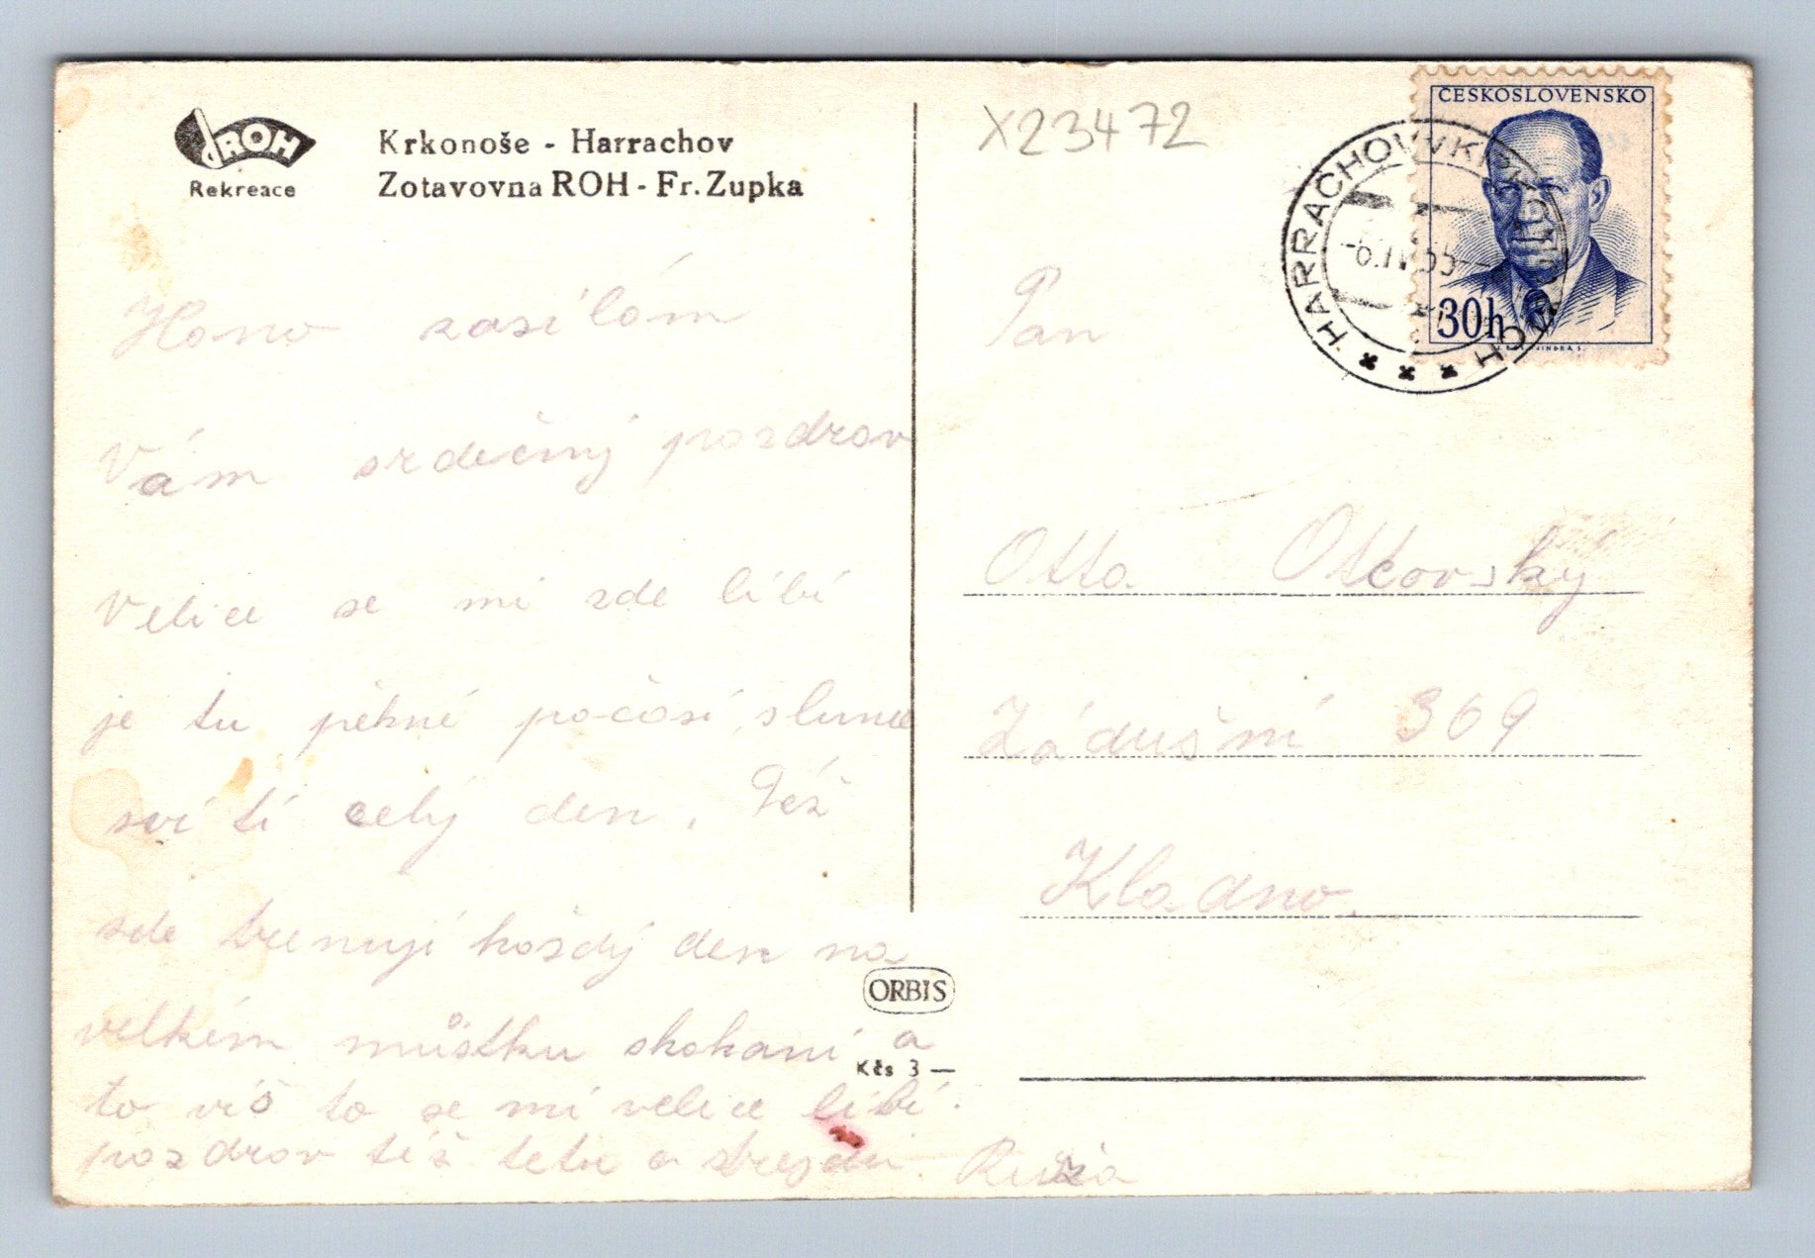 ROH
Rekreace
Krkonoše - Harrachov
Zotavovna ROH - Fr. Zupka
X23472
ČESKOSLOVENSKO
30h
HARRACHOV V KRKONOŠÍCH
-6.IV.55-
Pan
Otto
Zádušní 309
Kladno.
zasílám
Vám srdečný pozdrav
Velice se mi zde líbí
je tu pěkné počasí, slunce
svítí celý den. Též
zde trenují každý den na
velkém můstku skokani a
to víš to se mi velice líbí.
pozdrav též tetu a strejdu.
ORBIS
Kčs 3 —